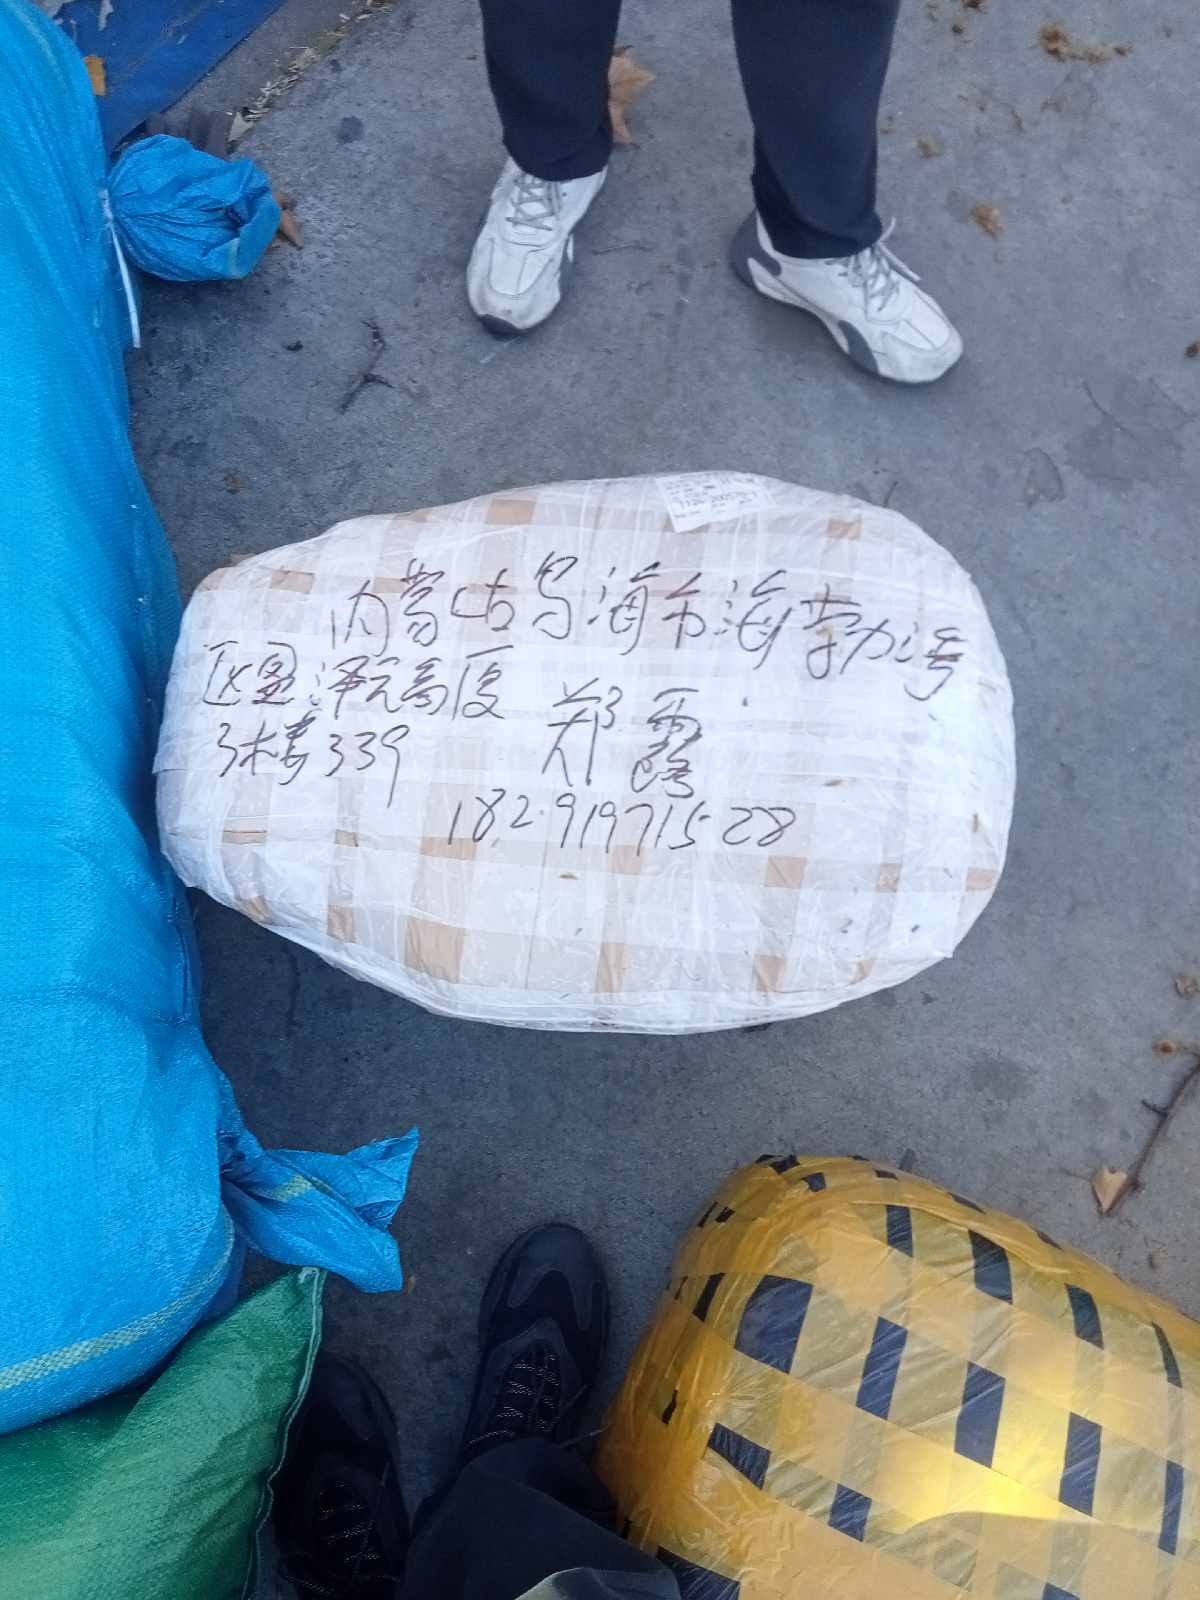 内蒙古乌海市海勃湾
区盈泽元高层
3楼339 郑露
18291971528